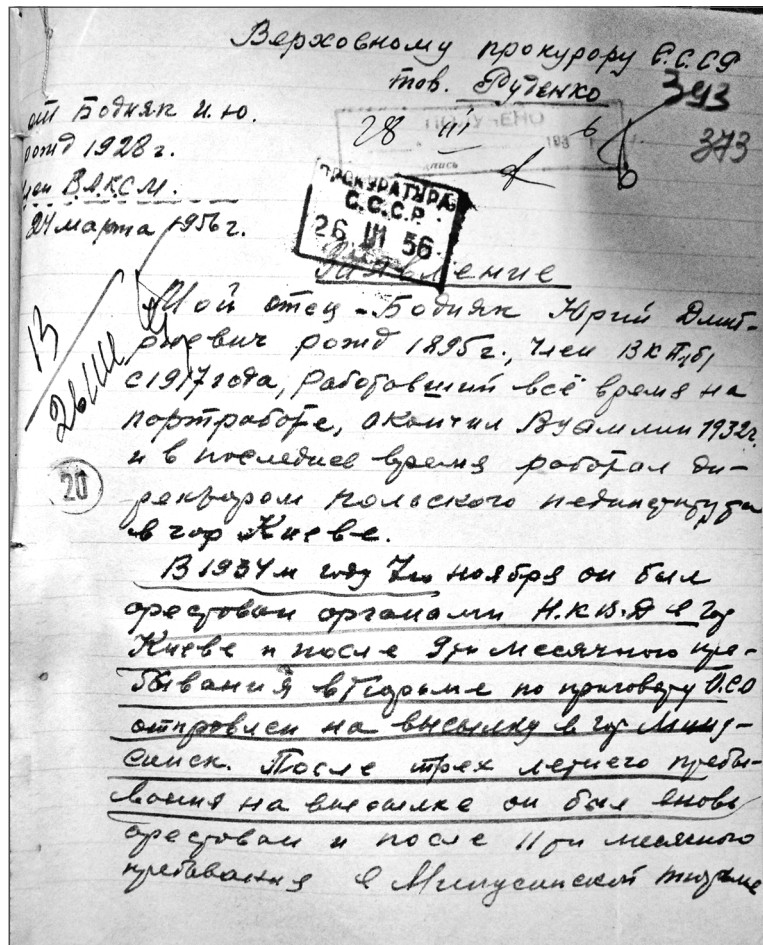 Верховному прокурору С.С.С.Р
тов. Руденко
393
373
от Бодняк И. Ю.
рожд 1928 г.
член В.Л.К.С.М.
24 марта 1956 г.
ПОЛУЧЕНО
28 III 6
ПРОКУРАТУРА
С.С.С.Р.
26 III 56
Заявление
26/III
Мой отец - Бодняк Юрий Дмит-
риевич рожд 1895 г., член ВКП(б)
с 1917 года, работавший всё время на
партработе, окончил 1932 г.
и в последнее время работал ди-
ректором польского пединститута
в гор Киеве.
20
В 1934 м году 7го ноября он был
арестован органами Н.К.В.Д в гор
Киеве и после 9ти месячного пре-
бывания в тюрьме по приговору О.С.О
отправлен на высылку в гор Мину-
синск. После трех летнего пребы-
вания на высылке он был вновь
арестован и после 11ти месячного
пребывания в Минусинской тюрьме